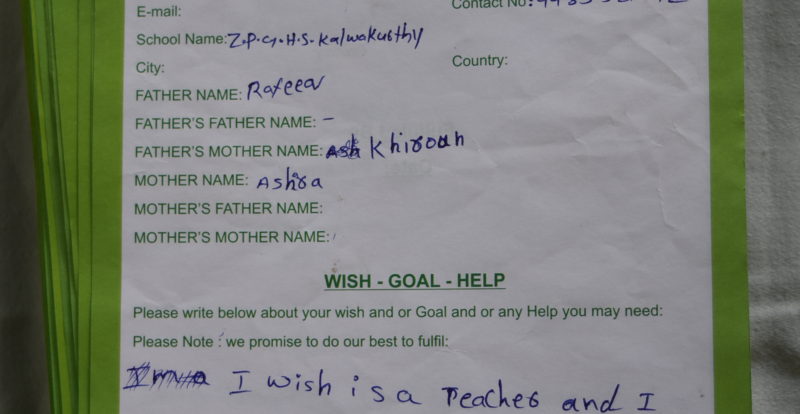 E-mail:
Contact No:
School Name: Z.P.G.H.S. Kalwakurthy
City:
Country:
FATHER NAME: Rafeev
FATHER'S FATHER NAME: -
FATHER'S MOTHER NAME: Khiroun
MOTHER NAME: Ashra
MOTHER'S FATHER NAME:
MOTHER'S MOTHER NAME:
WISH - GOAL - HELP
Please write below about your wish and or Goal and or any Help you may need:
Please Note : we promise to do our best to fulfil:
I wish is a Teacher and I